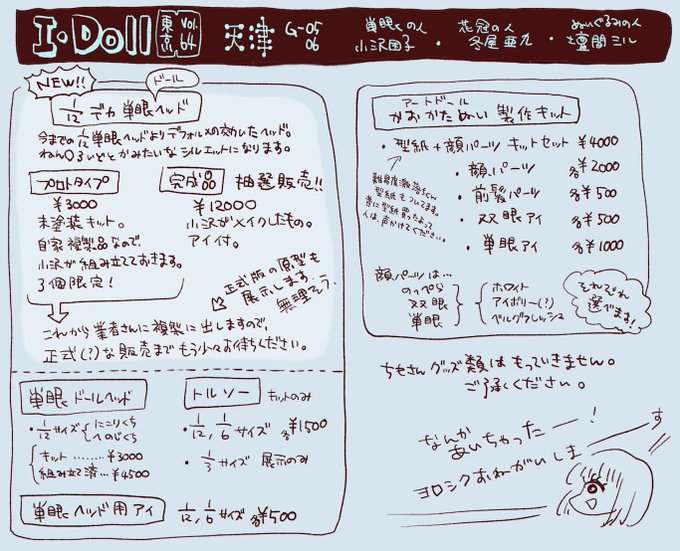 I・Doll 東京 VOL.64 天津 G-05 06
単眼の人 小沢団子 ・ 花冠の人 冬尾亜九 ・ ぬいぐるみの人 壇間ミル
NEW!!
ドール
1/12 デカ単眼ヘッド
今までの1/12単眼ヘッドよりデフォルメの効いたヘッド。
ねん〇ろいどとかみたいなシルエットになります。
プロトタイプ
¥3000
未塗装キット。
自家複製品なので、
小沢が組み立てておきます。
3個限定!
完成品 抽選販売!!
¥12000
小沢がメイクしたもの。
アイ付。
正式版の原型も
展示します、
無理そう、
これから業者さんに複製に出しますので、
正式(?)な販売までもう少々お待ちください。
単眼ドールヘッド
・1/12サイズ にこりくち
へのじくち
キット………¥3000
組み立て済…¥4500
トルソー キットのみ
・1/12, 1/6 サイズ 各¥1500
・1/3サイズ 展示のみ
単眼ヘッド用アイ 1/12, 1/6サイズ 各¥500
アートドール
かおかたぬい 製作キット
・型紙+顔パーツ キットセット ¥4000
・顔パーツ 各¥2000
・前髪パーツ 各¥500
・双眼アイ 各¥500
・単眼アイ 各¥1000
型紙もついてます。
昔に型紙買ったよって
人は声かけてください。
顔パーツは…
のっぺら
双眼
単眼
ホワイト
アイボリー(?)
ベルグフレッシュ
それぞれ
選べます!
ちもさんグッズ類はもっていきません。
ご了承ください。
なんか
あいちゃったー!
ヨロシクおねがいしま
す